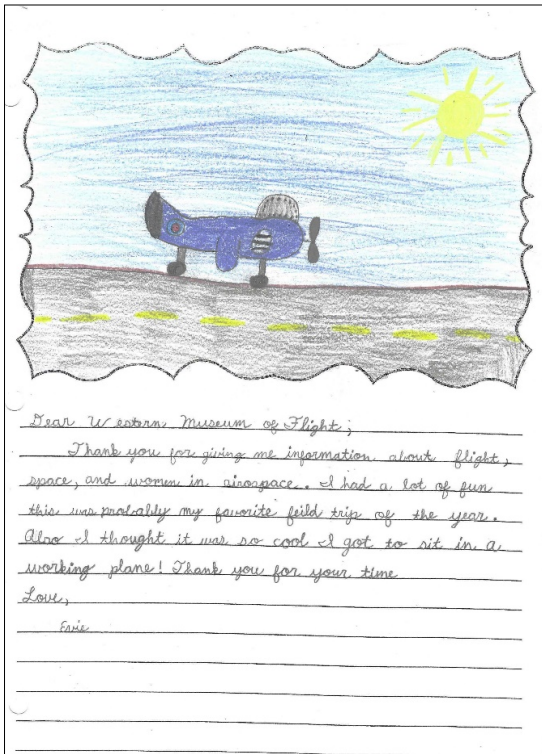 Dear Western Museum of Flight;
Thank you for giving me information about flight,
space, and women in airospace. I had a lot of fun
this was probably my favorite feild trip of the year.
Also I thought it was so cool I got to sit in a
working plane! Thank you for your time
Love,
Evie